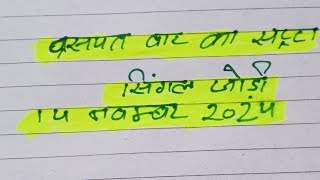 वसपत वार का सट्टा
सिंगल जोड़ी
14 नवम्बर 2024